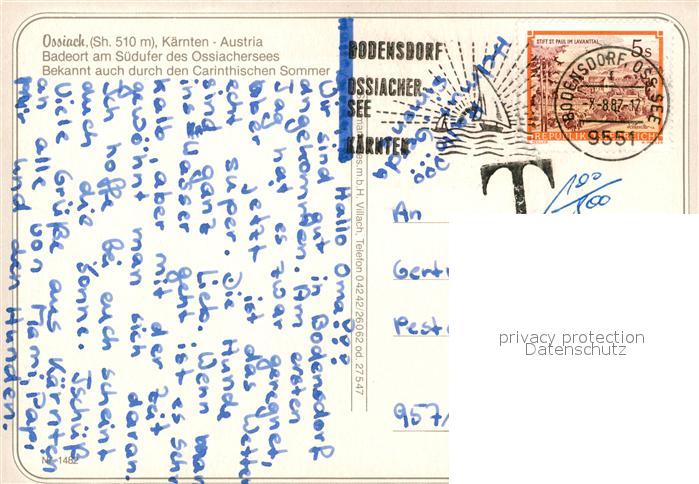 Ossiach, (Sh. 510 m), Kärnten - Austria
Badeort am Südufer des Ossiachersees
Bekannt auch durch den Carinthischen Sommer
Hallo Oma!
Wir sind gut in Bodensdorf
angekommen. Am ersten
Tag hat es zwar geregnet,
aber jetzt ist das Wetter
echt super. Die Hunde
sind ganz lieb. Wenn man
ins Wasser geht ist es sehr
kalt, aber mit der Zeit
gewöhnt man sich daran.
Ich hoffe bei euch scheint
auch die Sonne. Tschüß
Viele Grüße aus Kärnten
an alle von Mami, Papi
mir und den Hunden.
Nr. 1482
m.b.H. Villach, Telefon 0 42 42/26 0 62 od. 27 5 47
BODENSDORF
OSSIACHER
SEE
KÄRNTEN
STIFT ST. PAUL IM LAVANTTAL
5 S
REPUBLIK ÖSTERREICH
BODENSDORF, OSS. SEE
-7.-8.87-17
9551
T
100
An
Gertr
Pest
957
privacy protection
Datenschutz